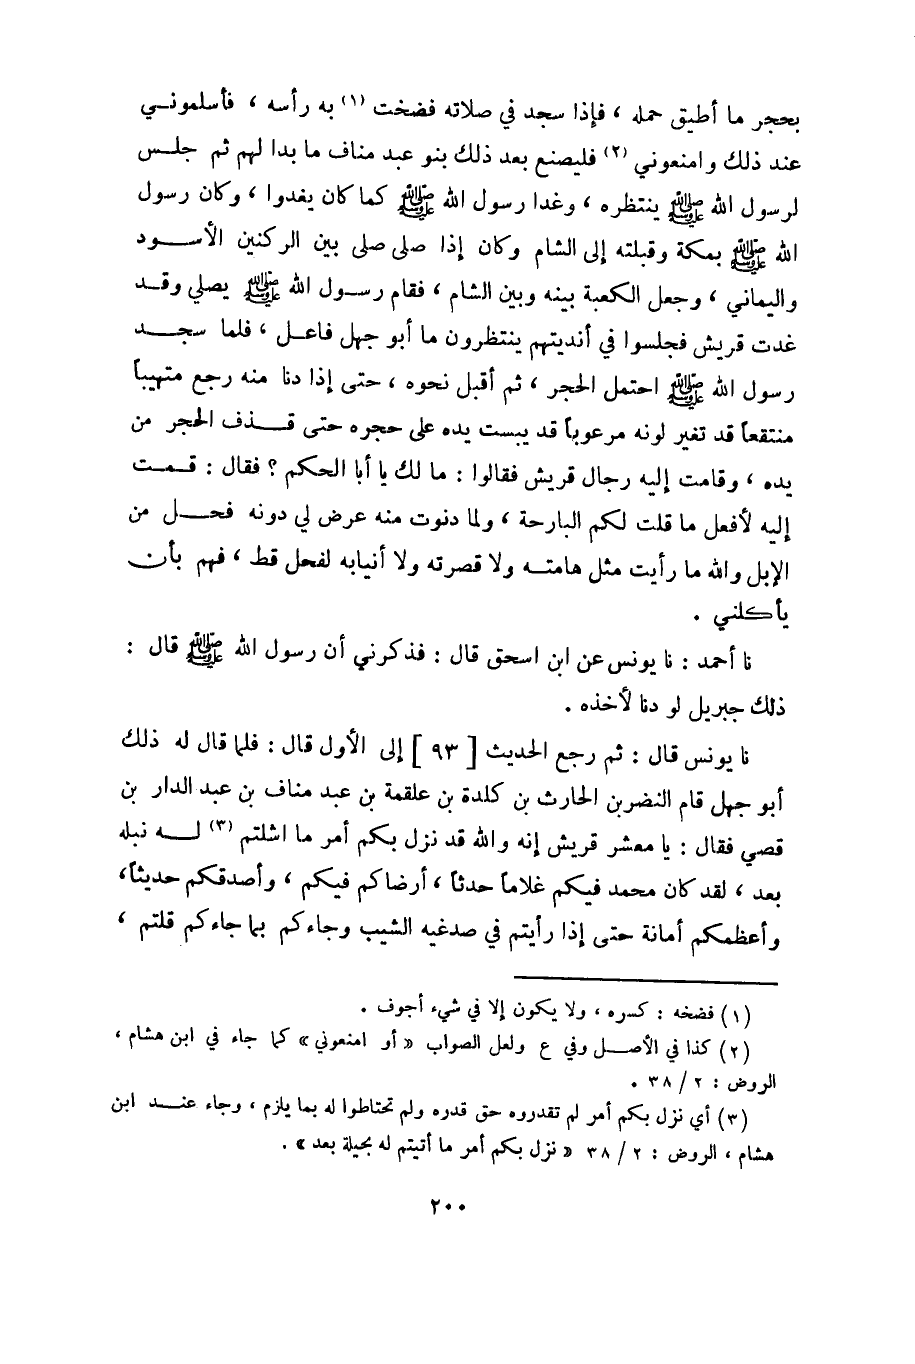 بحجر ما أطيق حمله ، فإذا سجد في صلاته فضخت (١) به رأسه ، فأسلموني
عند ذلك وامنعوني (٢) فليصنع بعد ذلك بنو عبد مناف ما بدا لهم ثم جلس
لرسول الله ﷺ ينتظره ، وغدا رسول الله ﷺ كما كان يغدوا ، وكان رسول
الله ﷺ بمكة وقبلته إلى الشام وكان إذا صلى صلى بين الركنين الأسود
واليماني ، وجعل الكعبة بينه وبين الشام ، فقام رسول الله ﷺ يصلي وقد
غدت قريش فجلسوا في أنديتهم ينتظرون ما أبو جهل فاعل ، فلما سجد
رسول الله ﷺ احتمل الحجر ، ثم أقبل نحوه ، حتى إذا دنا منه رجع متهيباً
منتقعاً قد تغير لونه مرعوباً قد يبست يده على حجره حتى قذف الحجر من
يده ، وقامت إليه رجال قريش فقالوا : ما لك يا أبا الحكم ؟ فقال : قمت
إليه لأفعل ما قلت لكم البارحة ، ولما دنوت منه عرض لي دونه فحل من
الإبل والله ما رأيت مثل هامته ولا قصرته ولا أنيابه لفحل قط ، فهم بأن
يأكلني .
نا أحمد : نا يونس عن ابن اسحق قال : فذكرني أن رسول الله ﷺ قال :
ذلك جبريل لو دنا لأخذه .
نا يونس قال : ثم رجع الحديث [ ٩٣ ] إلى الأول قال : فلما قال له ذلك
أبو جهل قام النضر بن الحارث بن كلدة بن علقمة بن عبد مناف بن عبد الدار بن
قصي فقال : يا معشر قريش إنه والله قد نزل بكم أمر ما اشلتم (٣) له نبله
بعد ، لقد كان محمد فيكم غلاماً حدثاً ، أرضاكم فيكم ، وأصدقكم حديثاً ،
وأعظمكم أمانة حتى إذا رأيتم في صدغيه الشيب وجاءكم بما جاءكم قلتم ،
(١) فضخه : كسره ، ولا يكون إلا في شيء أجوف .
(٢) كذا في الأصل وفي ع ولعل الصواب « أو امنعوني » كما جاء في ابن هشام ،
الروض : ٢ / ٣٨ .
(٣) أي نزل بكم أمر لم تقدروه حق قدره ولم تحتاطوا له بما يلزم ، وجاء عند ابن
هشام ، الروض : ٢ / ٣٨ « نزل بكم أمر ما أتيتم له بحيلة بعد » .
٢٠٠